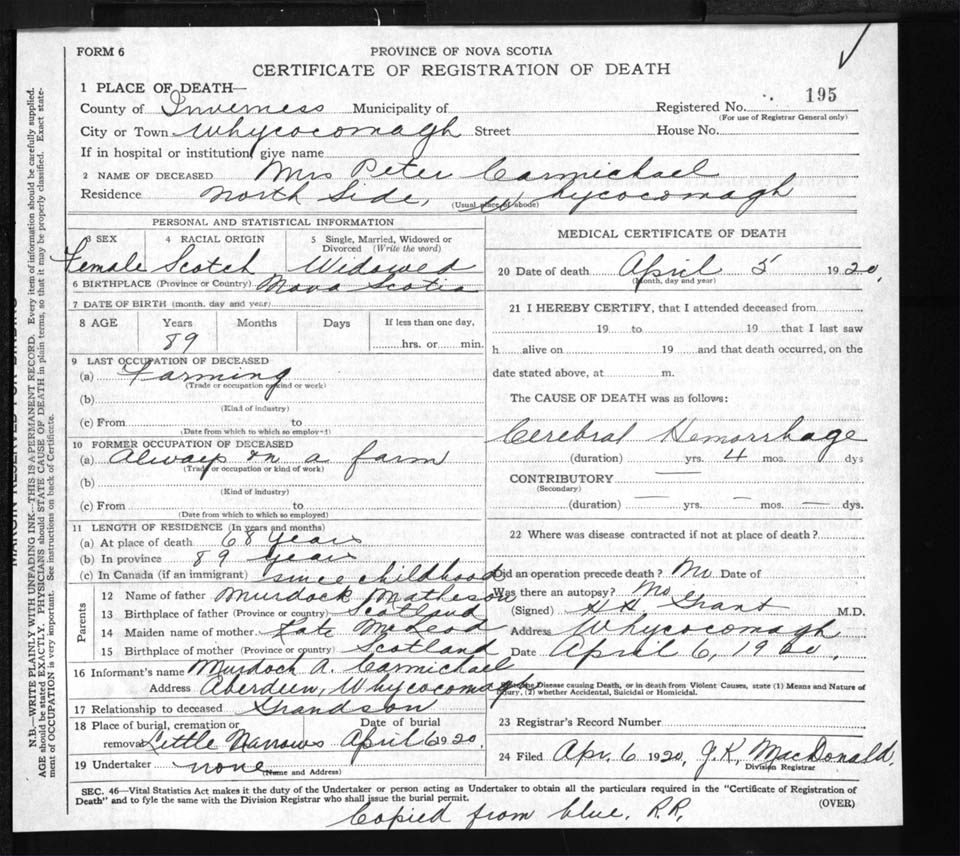 FORM 6
PROVINCE OF NOVA SCOTIA
CERTIFICATE OF REGISTRATION OF DEATH
1 PLACE OF DEATH—
County of Inverness Municipality of
Registered No. 195
(For use of Registrar General only)
City or Town Whycocomagh Street House No.
If in hospital or institution give name
2 NAME OF DECEASED Mrs Peter Carmichael
Residence North Side, Whycocomagh
(Usual place of abode)
PERSONAL AND STATISTICAL INFORMATION
3 SEX 4 RACIAL ORIGIN 5 Single, Married, Widowed or
Divorced (Write the word)
Female Scotch Widowed
6 BIRTHPLACE (Province or Country) Nova Scotia
7 DATE OF BIRTH (month, day and year)
8 AGE Years Months Days If less than one day,
89 hrs. or min.
9 LAST OCCUPATION OF DECEASED
(a) Farming
(Trade or occupation or kind or work)
(b)
(Kind of industry)
(c) From to
(Date from which to which so employed)
10 FORMER OCCUPATION OF DECEASED
(a) Always on a farm
(Trade or occupation or kind of work)
(b)
(Kind of industry)
(c) From to
(Date from which to which so employed)
11 LENGTH OF RESIDENCE (In years and months)
(a) At place of death 68 years
(b) In province 89 years
(c) In Canada (if an immigrant) since childhood
Parents
12 Name of father Murdock Matheson
13 Birthplace of father (Province or country) Scotland
14 Maiden name of mother Kate McLeod
15 Birthplace of mother (Province or country) Scotland
16 Informant's name Murdoch A. Carmichael
Address Aberdeen, Whycocomagh
17 Relationship to deceased Grandson
18 Place of burial, cremation or Date of burial
removal Little Narrows April 6 1920.
19 Undertaker none
(Name and Address)
MEDICAL CERTIFICATE OF DEATH
20 Date of death April 5 1920.
(Month, day and year)
21 I HEREBY CERTIFY, that I attended deceased from
19 to 19 that I last saw
h alive on 19 and that death occurred, on the
date stated above, at m.
The CAUSE OF DEATH was as follows:
Cerebral Hemorrhage
(duration) yrs. 4 mos. dys
CONTRIBUTORY —
(Secondary)
(duration) — yrs. — mos. — dys.
22 Where was disease contracted if not at place of death?
Did an operation precede death? No Date of
Was there an autopsy? No
(Signed) H H Grant M.D.
Address Whycocomagh
Date April 6, 1920.
Disease causing Death, or in death from Violent Causes, state (1) Means and Nature of
Injury, (2) whether Accidental, Suicidal or Homicidal.
23 Registrar's Record Number
24 Filed Apr. 6 1920, J.K. MacDonald.
Division Registrar
SEC. 46—Vital Statistics Act makes it the duty of the Undertaker or person acting as Undertaker to obtain all the particulars required in the "Certificate of Registration of
Death" and to fyle the same with the Division Registrar who shall issue the burial permit.
(OVER)
Copied from blue. R.R.
N.B.—WRITE PLAINLY WITH UNFADING INK—THIS IS A PERMANENT RECORD. Every item of information should be carefully supplied.
AGE should be stated EXACTLY. PHYSICIANS should STATE CAUSE OF DEATH in plain terms, so that it may be properly classified. Exact state-
ment of OCCUPATION is very important. See instructions on back of Certificate.